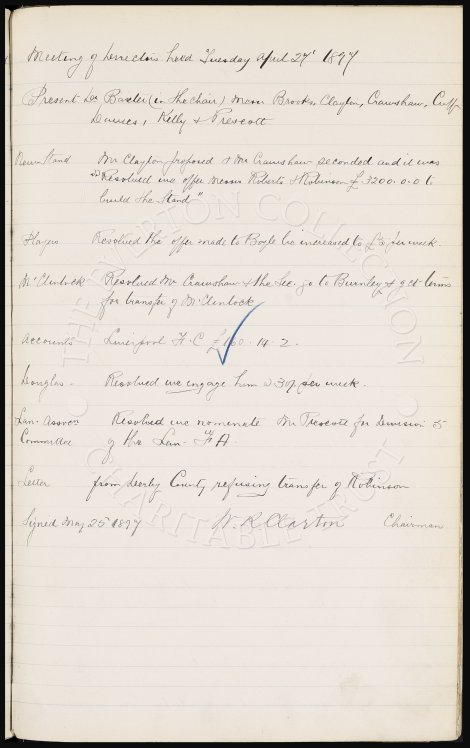 Meeting of Directors held Tuesday April 27t 1897
Present Dr Baxter (in the chair) Messrs Brooks, Clayton, Crawshaw, Cuff
Davies, Kelly & Prescott
Stand Mr Clayton proposed & Mr Crawshaw seconded and it was
"Resolved we offer Messrs Roberts & Robinson £3200.0.0 to
build the Stand"
Players Resolved the offer made to Boyle be increased to £3 per week.
McClintock Resolved Mr Crawshaw & the Sec. go to Burnley & get terms
for transfer of McClintock
Accounts Liverpool F.C £160.14.2.
Douglas. Resolved we engage him @ 30/- per week.
Lan. Assocn Resolved we nominate Mr Prescott for Division 5
Committee of the Lan. F A
Letter from Derby County refusing transfer of Robinson
Signed May 25 1897 W. R. Clayton Chairman
THE EVERTON COLLECTION
CHARITABLE TRUST